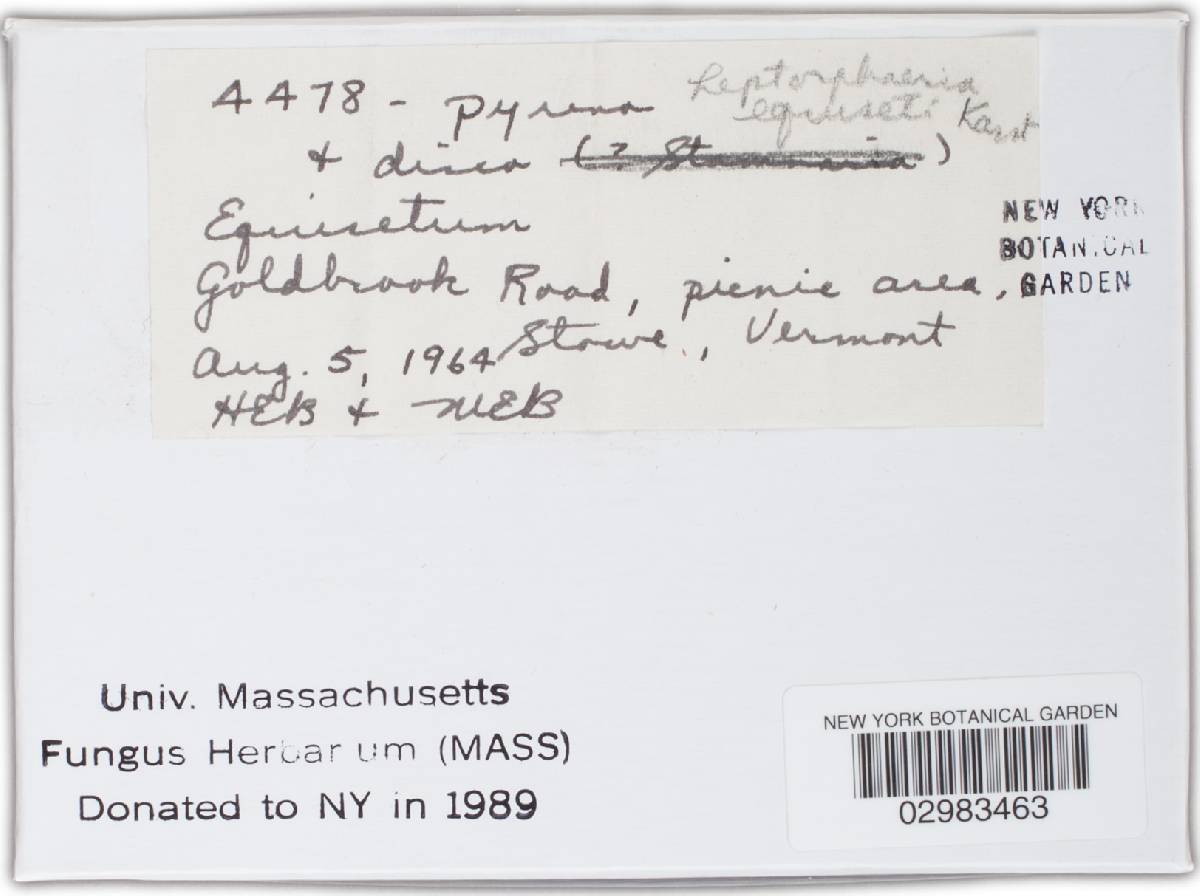 4478 - Pyreno Leptosphaeria
equiseti Karst
& disco (? Stammaria)
Equisetum
Goldbrook Road, picnic area,
Aug. 5, 1964 Stowe, Vermont
HEB & MEB
NEW YORK
BOTANICAL
GARDEN
Univ. Massachusetts
Fungus Herbarium (MASS)
Donated to NY in 1989
NEW YORK BOTANICAL GARDEN
02983463